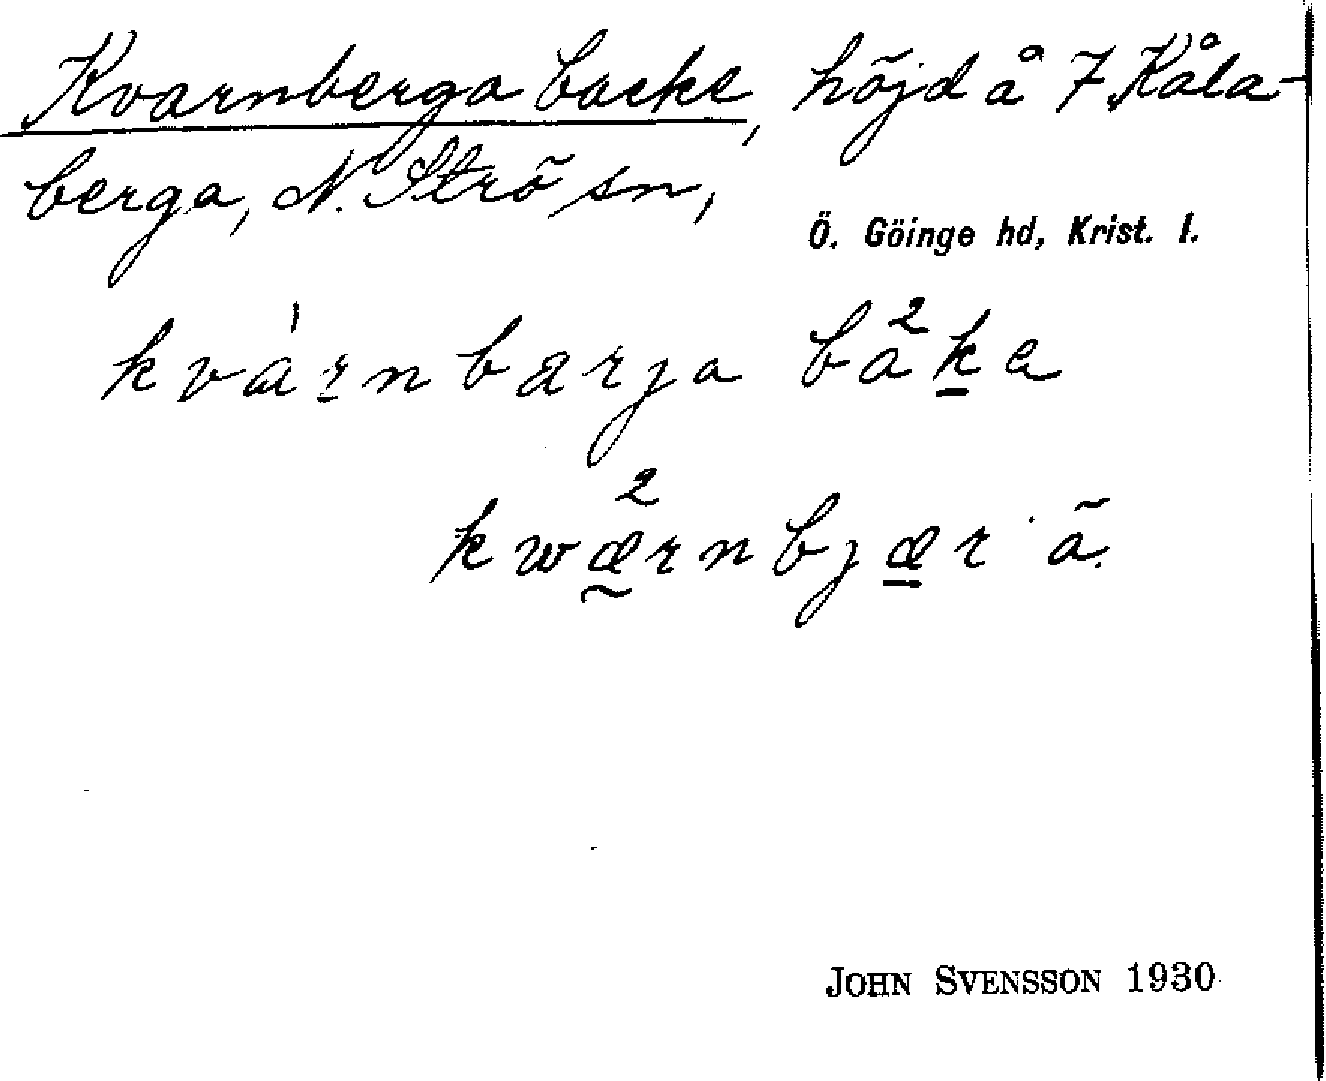 Kvarnberga backe, höjd å 7 Kåla-
berga, N. Strö sn,
Ö. Göinge hd, Krist. l.
kvàrnbarja ba²ka
kwæ²rnbjær ã.
JOHN SVENSSON 1930